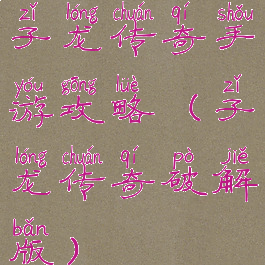 zǐ lóng chuán qí shǒu
子龙传奇手
yóu gōng lüè zǐ
游攻略（子
lóng chuán qí pò jiě
龙传奇破解
bǎn
版）